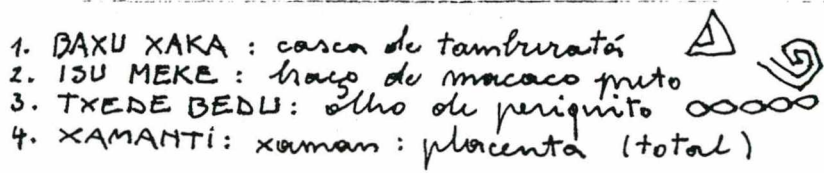 1. BAXU XAKA : casca de tamburatá
2. ISU MEKE : braço de macaco preto
3. TXEDE BEDU: olho de periquito
4. XAMANTI: xaman : placenta (total)